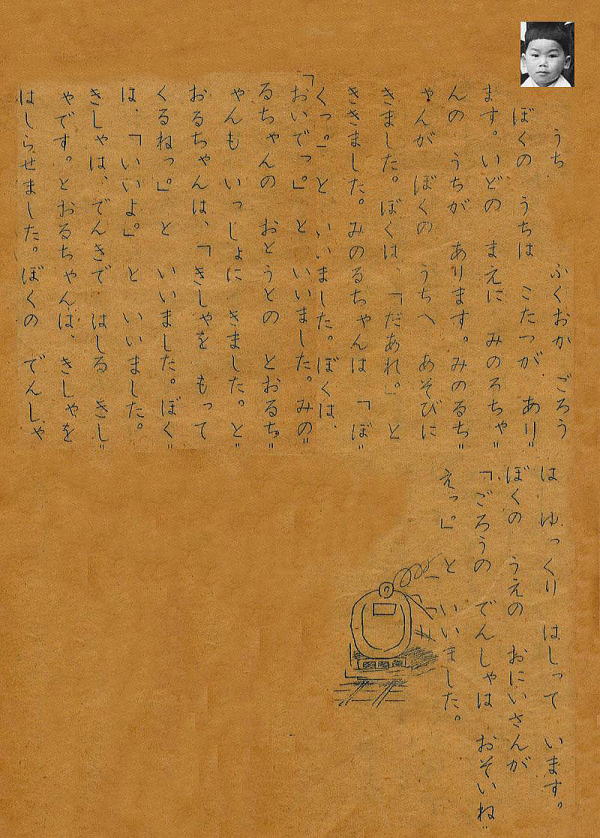 うち ふくおか ごろう
ぼくの うちは こたつが あり〃
ます。いどの まえに みのるちゃ〃
んの うちが あります。みのるち〃
ゃんが ぼくの うちへ あそびに
きました。ぼくは、「だあれ。」 と
ききました。みのるちゃんは 「ぼ〃
くっ。」と いいました。ぼくは、
「おいでっ。」 と いいました。みの〃
るちゃんの おとうとの とおるち〃
ゃんも いっしょに きました。と〃
おるちゃんは、「きしゃを もって
くるねっ。」 と いいました。ぼく〃
は、「いいよ。」 と いいました。
きしゃは、でんきで はしる きし〃
ゃです。とおるちゃんは、きしゃを
はしらせました。ぼくの でんしゃ
は ゆっくり はしって います。
ぼくの うえの おにいさんが
「ごろうの でんしゃは おそいね〃
えっ。」 と いいました。